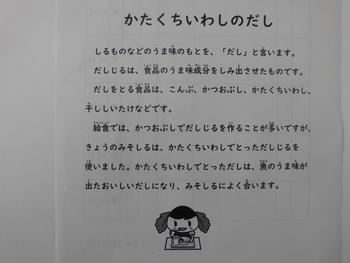 かたくちいわしのだし
しるものなどのうま味のもとを、「だし」と言います。
だしじるは、食品のうま味成分をしみ出させたものです。
だしをとる食品は、こんぶ、かつおぶし、かたくちいわし、
干ししいたけなどです。
給食では、かつおぶしでだしじるを作ることが多いですが、
きょうのみそしるは、かたくちいわしでとっただしじるを
使いました。かたくちいわしでとっただしは、魚のうま味が
出たおいしいだしになり、みそしるによく合います。